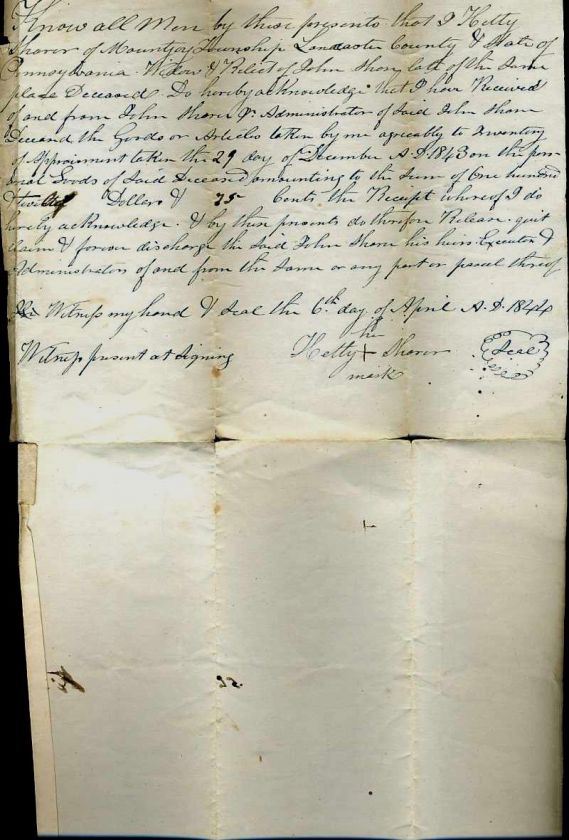 Know all Men by these presents that I Hetty
Sharer of Mountjoy Township Lancaster County & State of
Pennsylvania. Widow & Relict of John Sharer late of the Same
place Deceased Do hereby acknowledge that I have Received
of and from John Sharer Administrator of Said John Sharer
Deceased the Goods or Articles taken by me agreeably to Inventory
of Appraisment taken the 29 day of December A.D. 1843 on the per
sonal Goods of Said Deceased amounting to the Sum of One hundred
Dollars & 75 Cents the Receipt whereof I do
hereby acKnowledge. & by these presents do therefore Release. quit
claim & forever discharge the Said John Sharer his heirs Executors &
Administrators of and from the Same or any part or parcel thereof
Witness my hand & Seal the 6th day of April A.D. 1844
her
Witness present at Signing Hetty + Sharer Seal
mark